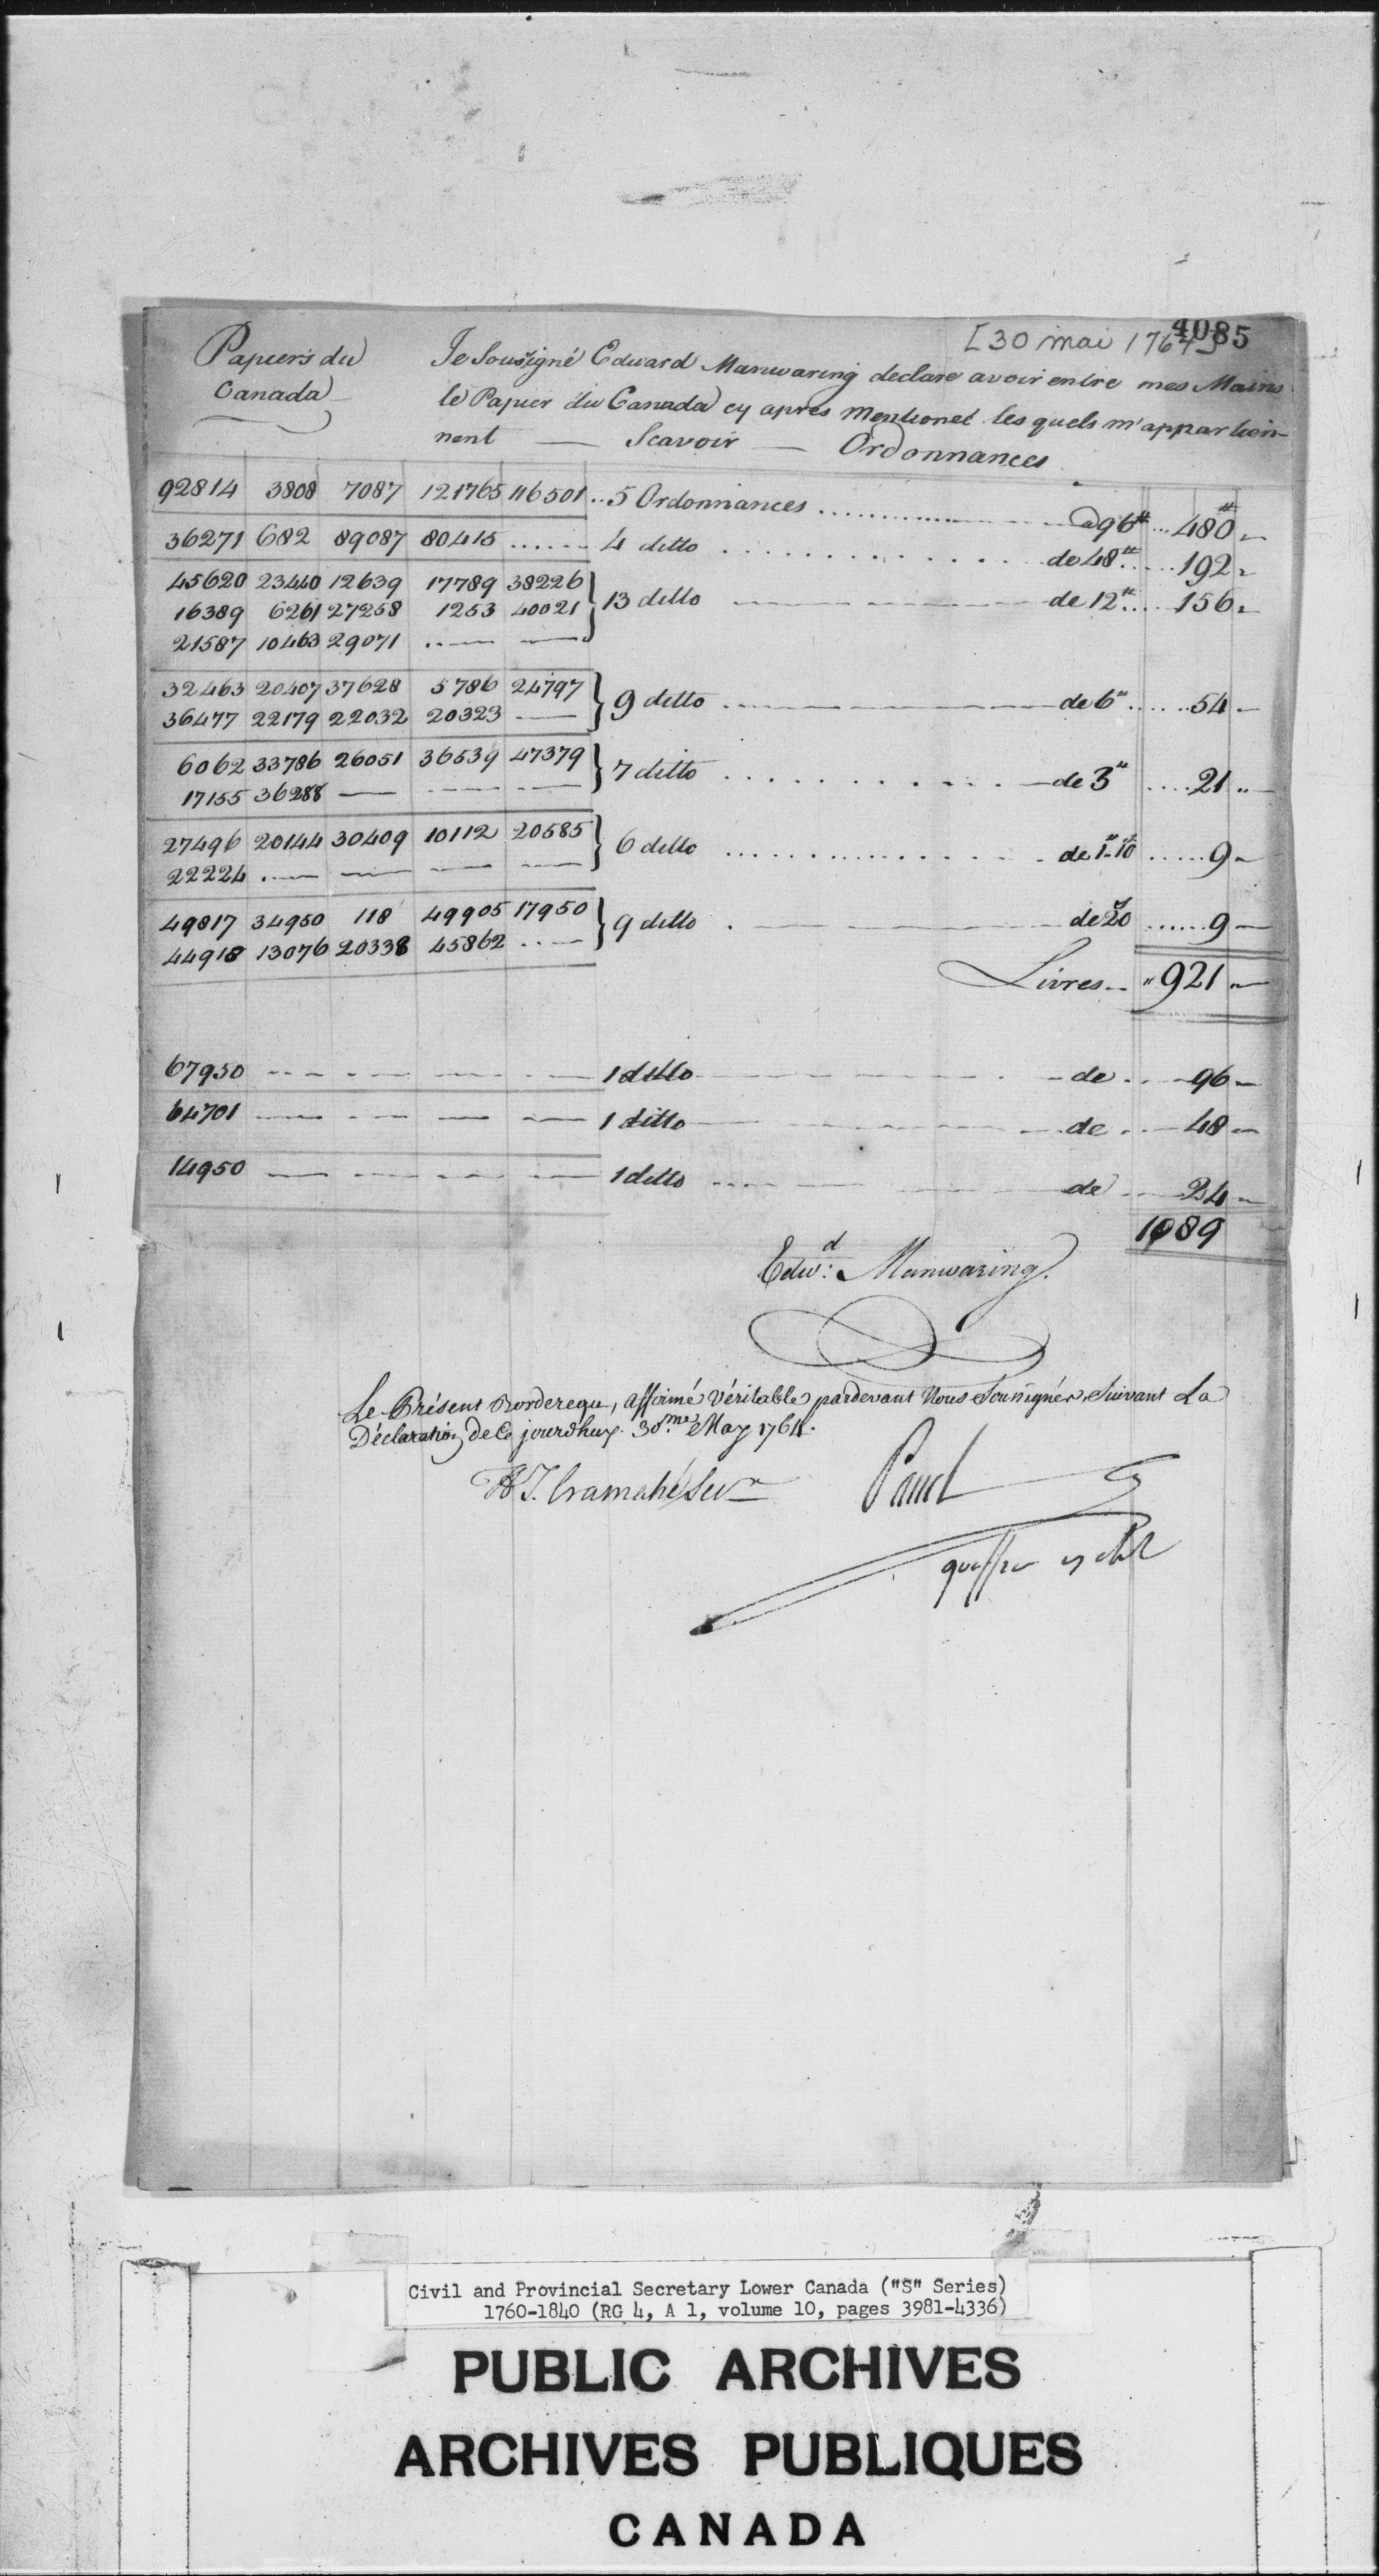 4085
[30 mai 1764]
Papiers du
Canada
Je Sousigné Edward Manwaring declare avoir entre mes Mains
le Papier du Canada cy apres Mentionet les quels m'appartien-
nent — Scavoir — Ordonnances
92814 3808 7087 121765 116501 .. 5 Ordonnances ........ a 96# ... 480#
36271 682 89087 80415 ...... 4 ditto ........ de 48# ..... 192
45620 23440 12639 17789 38226
16389 6261 27258 1253 40021 } 13 ditto — de 12# .... 156
21587 10463 29071 .. — —
32463 20407 37628 5786 24797
36477 22179 22032 20323 — } 9 ditto — de 6# ...... 54
6062 33786 26051 36539 47379
17155 36288 — — — } 7 ditto ........ de 3# .... 21
27496 20144 30409 10112 20585
22224 . — — — — } 6 ditto ........ de 1#10s ...... 9
49817 34950 118 49905 17950
44918 13076 20338 45862 .. — } 9 ditto . — de 20s ...... 9
Livres .. " 921
67950 — 1 ditto — de .. 96
64701 — 1 ditto — de .. 48
14950 — 1 ditto — de .. 24
1089
Edwd: Manwaring.
Le Présent Bordereau, affirmé Véritable pardevant Nous Soussignés, Suivant La
Déclaration de Ce jourdhuy. 30.me May 1764.
H T. Cramahé Secr
Panet
Civil and Provincial Secretary Lower Canada ("S" Series)
1760-1840 (RG 4, A 1, volume 10, pages 3981-4336)
PUBLIC ARCHIVES
ARCHIVES PUBLIQUES
CANADA